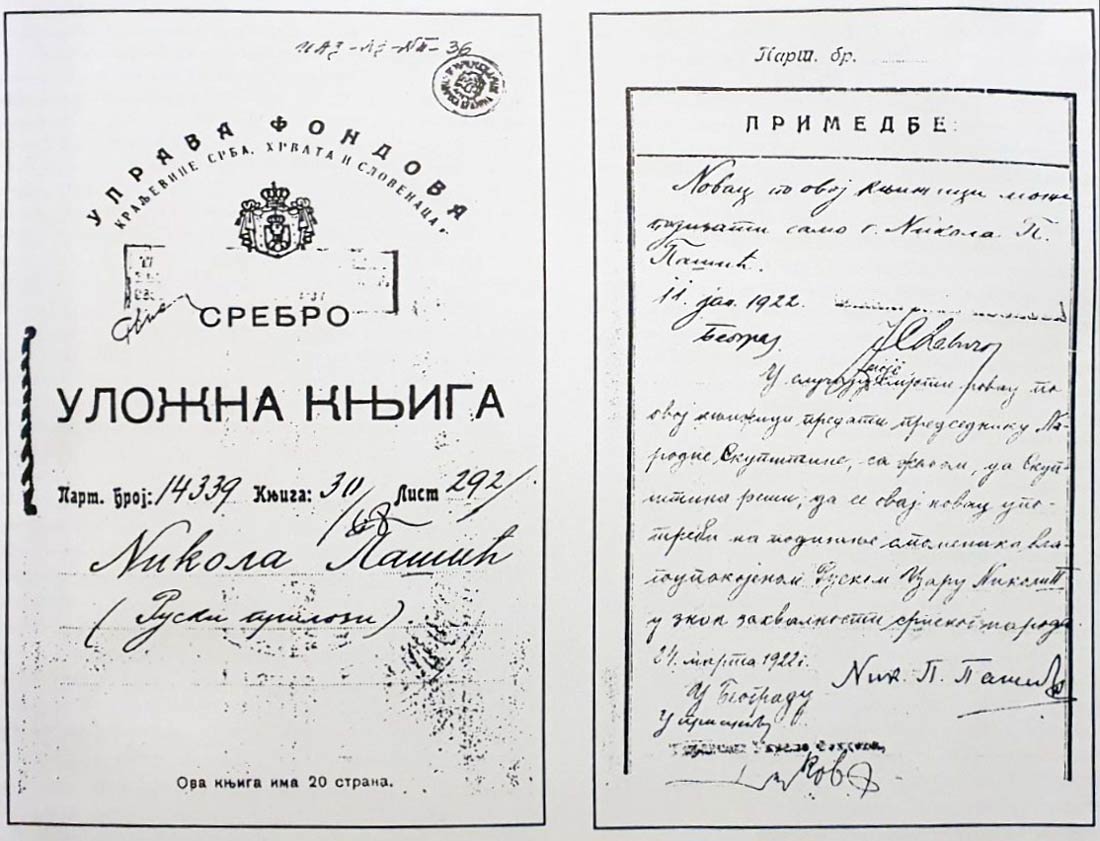 УПРАВА ФОНДОВА
КРАЉЕВИНЕ СРБА, ХРВАТА И СЛОВЕНАЦА
СРЕБРО
УЛОЖНА КЊИГА
Парт. Број: 14339 Књига: 30/ Лист 292/
Никола Пашић
(Руски прилози)
Ова књига има 20 страна.
Парт. бр.
ПРИМЕДБЕ:
Новац по овој књижици може
подизати само г. Никола П.
Пашић.
11. јан. 1922.
Београд
У случају моје смрти новац по
овој књижици предати председнику На-
родне Скупштине, са жељом, да Скуп-
штина реши, да се овај новац упо-
треби на подизање споменика бла-
гоупокојеном Руском Цару Николи II
у знак захвалности српског народа.
24. марта 1922 г.
У Београду
Ник. П. Пашић